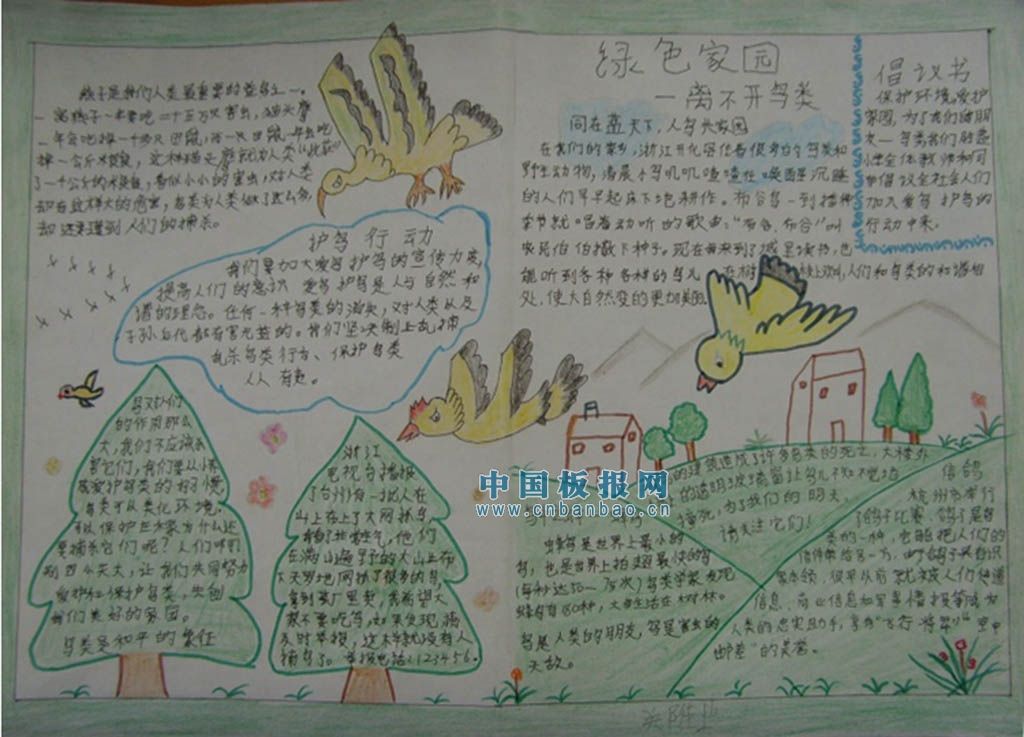 绿色家园
一离不开鸟类
倡议书
保护环境,爱护
家园,为了我们的朋
友一鸟类我们胜利
小学全体教师和同
学倡议全社会人们
加入爱鸟护鸟的
行动中来。
同在蓝天下,人鸟共家园
在我们的家乡,浙江开化居住着很多的鸟类和
野生动物,清晨小鸟叽叽喳喳在唤醒沉睡
的人们早早起床下地耕作。布谷鸟一到播种
季节就"唱着动听的歌声:"布谷、布谷"叫
农民伯伯撒下种子。现在我来到了城里读书,也
能听到各种各样的鸟儿 在树
人们和鸟类的和谐相
处,使大自然变的更加美丽。
燕子是我们人类最重要的益鸟之一。
一窝燕子一年要吃二十五万只害虫,猫头鹰
一年会吃掉一千多只田鼠,而一只田鼠一年要吃
掉一公斤米粮食,这样猫头鹰就为人类"
了一千公斤的米粮食,看似小小的害虫,对人类
却有这样大的危害,鸟类为人类做了这么多
却还来遭到人们的捕杀。
护鸟行动
我们要加大爱鸟护鸟的宣传力度,
提高人们的意识 爱鸟护鸟是人与自然和
谐的理念。任何一种鸟类的消失,对人类以及
子孙后代都有害无益的。我们坚决制止乱捕
乱杀鸟类行为、保护鸟类
人人有责。
鸟对人们
的作用那么
大,我们不应该杀
害它们,我们要从小养
成爱护鸟类的好习惯
鸟类可以美化环境,
可以保护庄稼为什么还
要捕杀它们呢?人们啊!
别再杀鸟类了,让我们共同努力
爱护和保护鸟类,共创
我们美好的家园。
鸟类是和平的象征
浙江
电视台播报
了台州有一批人在
山上布上了大网抓鸟,
看的非常生气,他们
在满山遍野的大山上布
下天罗地网抓了很多的鸟,
拿到菜厂里卖,我希望大
家不要吃鸟,如果发现,请
及时举报,这样就没有人
捕鸟了。举报电话:123456.
中国板报网
www.cnbanbao.cn
的建筑造成了许多鸟类的死亡,大楼外
的透明玻璃窗让鸟儿不知觉地
撞死,为我们的明天,
请关注它们!
蜂鸟是世界上最小的
鸟,也是世界上拍翅最快的鸟
(每秒达50-75次)鸟类学家发现
蜂鸟有 种,大多生活在树林。
鸟是人类的朋友,鸟是害虫的
天敌。
信鸽
杭州市举行
了鸽子比赛、鸽子是鸟
类的一种,它能把人们的
信件带给另一方,由于鸽子具有识
别本领,很早以前就被人们传递
信息、商业信息和军事情报等成为
人类的忠实助手,享有"飞行将军"空中
邮差"的美誉。